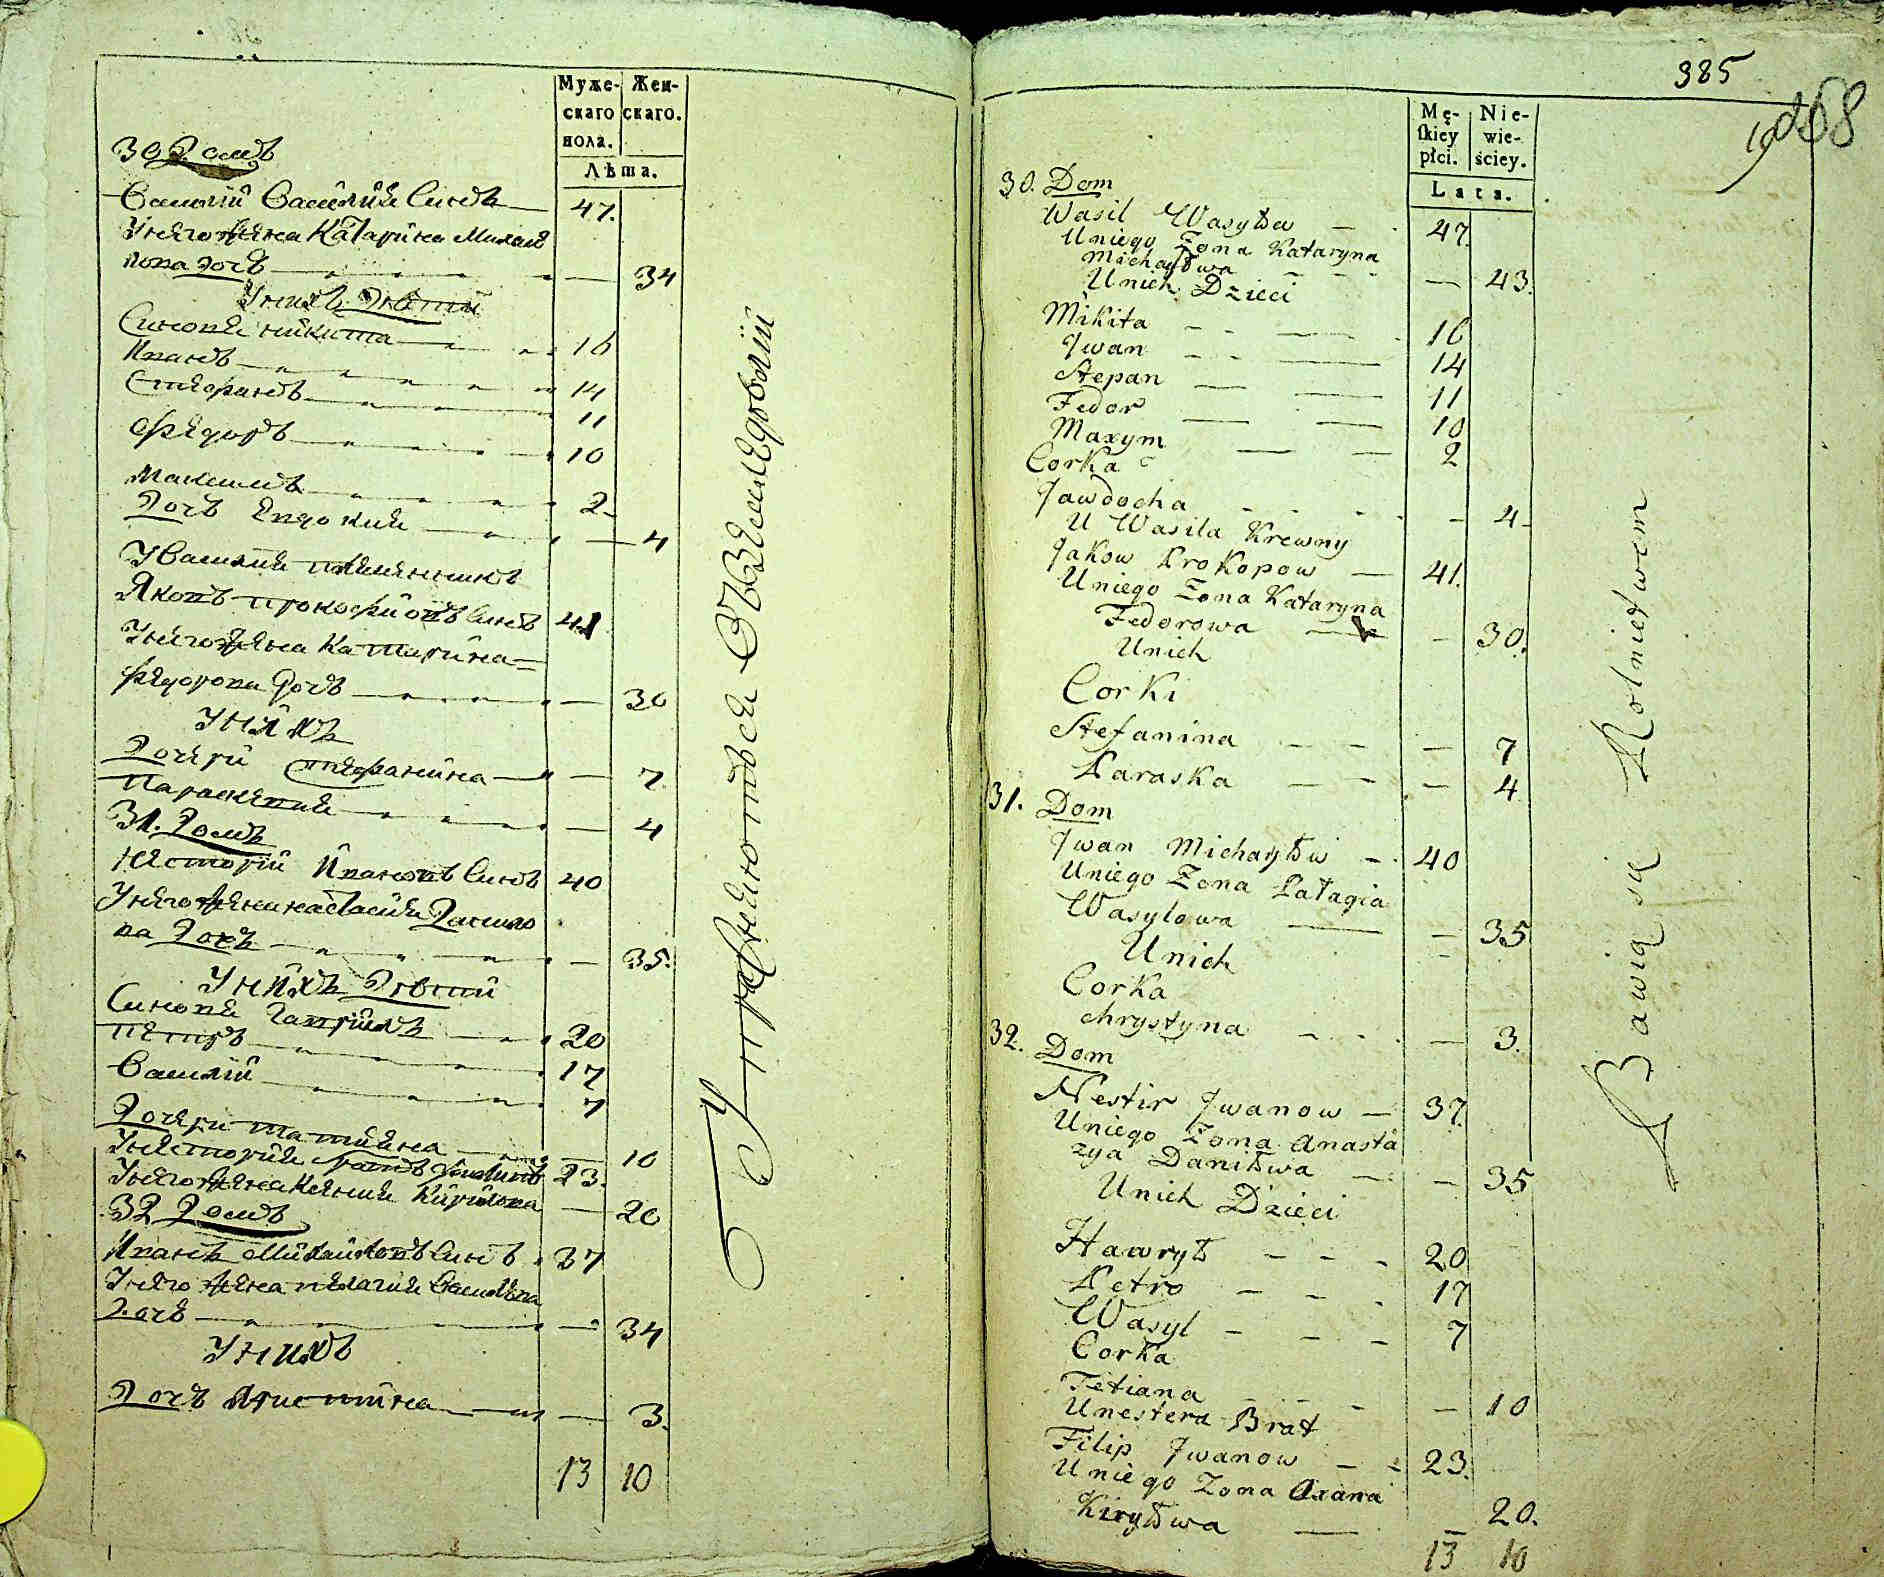 Муже-
скаго
пола.
Жен-
скаго.
Лѣта.
30 Домъ
Василій Василіѧ Синъ 47.
Унего Жена Катарина Михаи
лова дочъ 34
Унихъ Дѣти
Синовя Никита 16
Иванъ 14
Стефанъ 11
Федоръ 10
Максимъ 2.
Дочъ Евдокия 4
У Василия племянникъ
Яковъ Прокофиовъ Синъ 41
Унего Жена Катарина
Федорова Дочъ 30
Унихъ
Дочери Стефанина 7
Параскевия 4
31. Домъ
Несторий Ивановъ Синъ 40
Унего Жена Настасия Данило
ва Дочъ 35.
Унихъ Дѣти
Синовя Гаврило 20
Петръ 17
Василій 7
Дочери Татияна 10
Унестория братъ 23.
Унего Жена Ксения Кирилова 20
32 Домъ
Иванъ Михайловъ Синъ 37
Унего Жена Пелагия Василева
Дочъ 34
Унихъ
Дочъ Христина 3.
13 10
Упражняются
385
268
Mę-
skiey
płci.
Nie-
wie-
ściey.
Lata.
30. Dom
Wasil Wasylów 47.
Uniego Żona Kataryna
Michayłowa 43.
Unich Dzieci
Mikita 16
Jwan 14
Stepan 11
Fedor 10
Maxym 2
Corka
Jawdocha 4
U Wasila Krewny
Jakow Prokopow 41.
Uniego Żona Kataryna
Fedorowa 30.
Unich
Corki
Stefanina 7
Paraska 4
31. Dom
Jwan Michayłow 40
Uniego Żona Pałagia
Wasylowa 35
Unich
Corka
Chrystyna 3.
32. Dom
Nestir Jwanow 37.
Uniego Żona Anasta
zya Daniłowa 35
Unich Dzieci
Hawryło 20
Petro 17
Wasyl 7
Corka
Tetiana 10
Unestera Brat
Filip Jwanow 23.
Uniego Żona Oxana
Kiryłowa 20.
13 10
Bawią się Rolnictwem